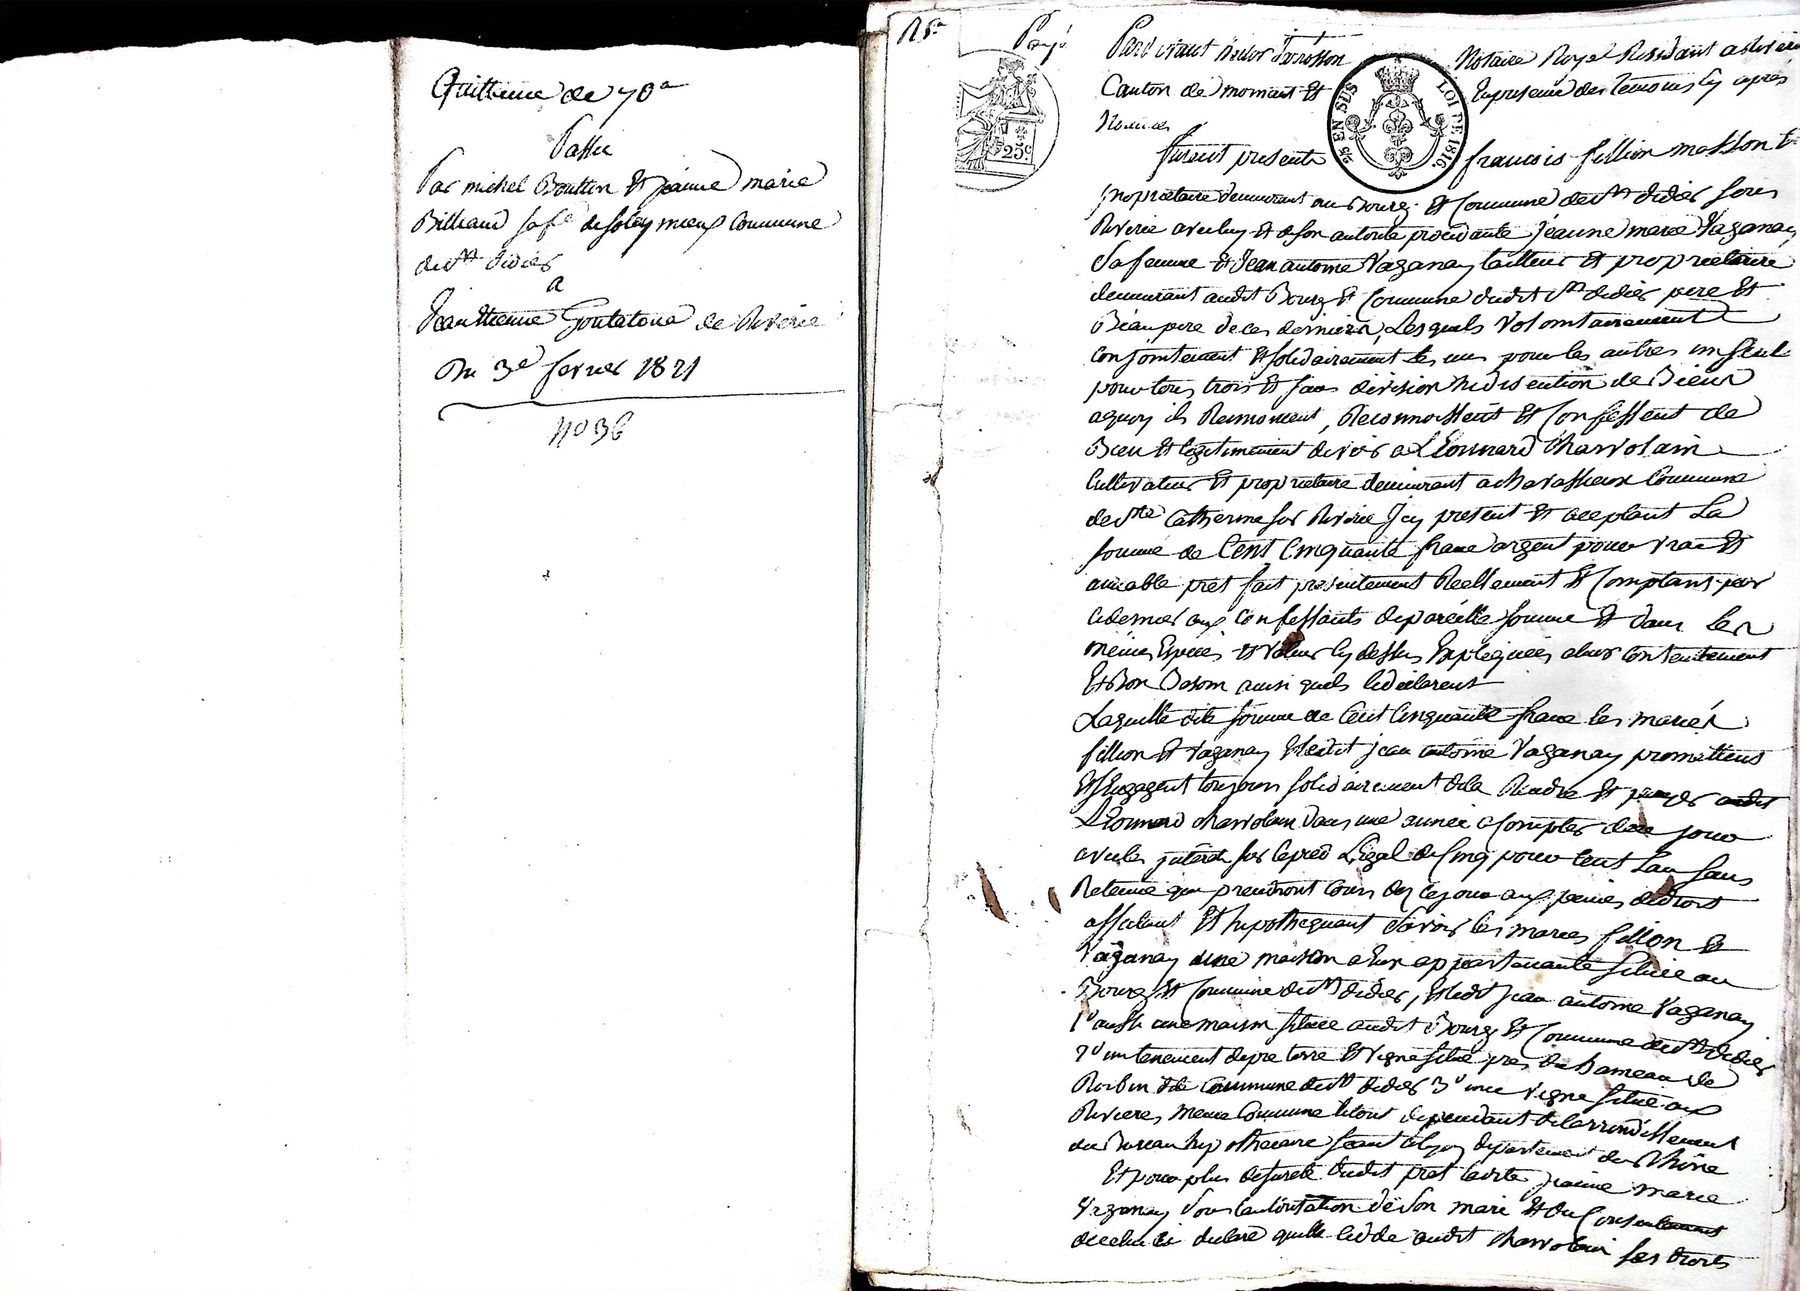 Quittance de 70 ª
Passée
Par michel Boutten Et jeanne marie
Billiaud sa fe de soleymieux Commune
de st didier
a
Jean Etienne Goutatoua de Riverie
Du 3e fevrier 1821
n° 36
Pard evant Notaire Royal Residant a Riverie
Canton de mornant Et En presence des temoins cy apres
Nommés
25 EN SUS LOI DE 1816
25c
furent presents francois fillion masson Et
proprietaire demeurant au Bourg Et Commune de st didier sous
Riverie avec luy Et de son autorité procedante jeanne marie Vaganay
Sa femme Et Jean antoine Vaganay tailleur Et proprietaire
demeurant audit Bourg Et Commune dudit st didier pere Et
Beaupere de ces derniers, Lesquels Volontairement
Conjointement Et solidairement les uns pour les autres un seul
pour tous trois Et sans division ni discution de Biens
aquoy ils Renoncent, Reconnoissent Et Confessent de
Bien Et legitimement devoir a Léonnard Charvolain
Cultivateur Et proprietaire demeurant a chavassieux Commune
de ste Catherine sur Riverie Jcy present Et acceptant La
somme de Cent Cinquante franc argent pour vrai Et
amiable pret fait presentement Reellement Et Comptant par
cedernier aux Confessants de pareille somme Et dans les
mêmes Especes Et valeur cy dessus Expliquées a leur Contentement
Et Bon Besoin ainsi quils le declarent
Laquelle dite somme de Cent Cinquante franc les mariés
fillion Et Vaganay Et ledit jean antoine Vaganay promettent
Et s'Engagent toujours solidairement de la Rendre Et payer audit
Léonnard charvolain Dans une année a Compter de ce jour
avec les jnterets sur le pied Légal de Cinq pour Cent L'an sans
Retenue qui prendront Cours des ce jour aux peines de droit
affectant Et hypothequant Savoir les maries fillion Et
Vaganay une maison a Eux appartenante située au
Bourg Et Commune de st didier, Et ledit Jean antoine Vaganay
1° aussi une maison située audit Bourg Et Commune de st Didier
2° un tenement de pre terre Et vigne situé pres du hameau de
Robin dite Commune de st didier 3° une vigne située aux
Rivieres, meme Commune le tout dependant de l'arrondissement
du Bureau hypothecaire séant a Lyon departement du Rhône
Et pour plus de sureté dudit pret ladite jeanne marie
Vaganay Sous l'autorisation de Son mari Et du Consentement
de celui ci declare quelle cède audit charvolain ses droits